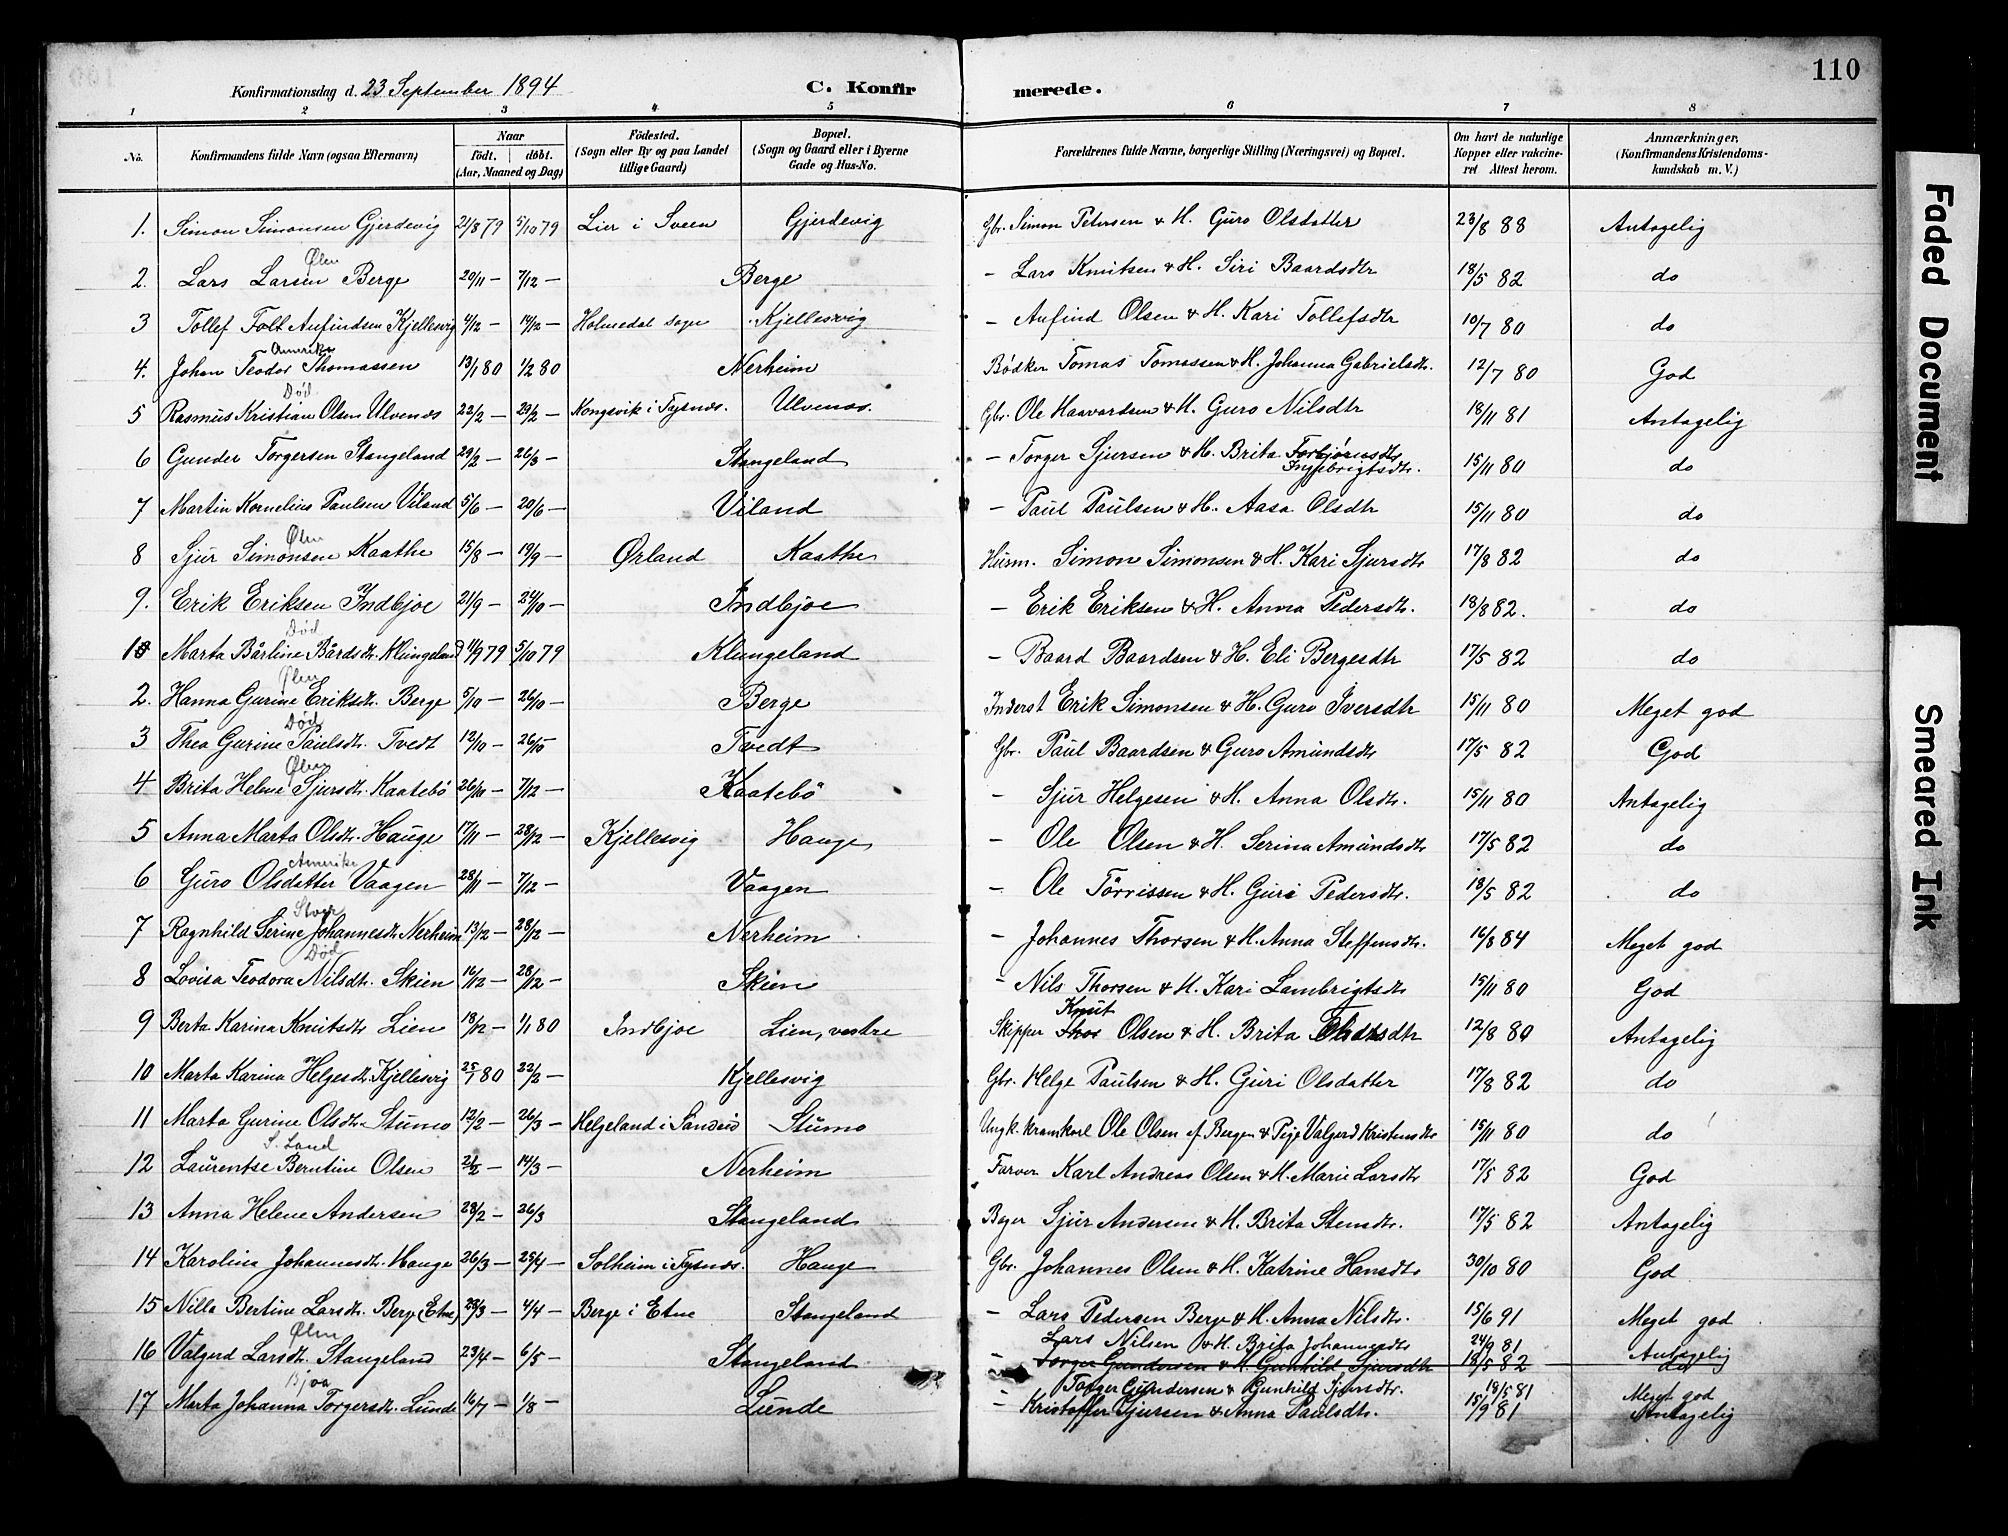 110
Konfirmationsdag d. 23 September 1894 C. Konfirmerede.
1 2 3 4 5 6 7 8
No. Konfirmandens fulde Navn (ogsaa Efternavn) Naar födt. döbt. (Aar, Maaned og Dag) Födested. (Sogn eller By og paa Landet tillige Gaard) Bopæl. (Sogn og Gaard eller i Byerne Gade og Hus-No.) Forældrenes fulde Navne, borgerlige Stilling (Næringsvei) og Bopæl. Om havt de naturlige Kopper eller vaccineret Attest herom. Anmærkninger. (Konfirmandens Kristendomskundskab m. V.)
1. Simon Simonsen Gjerdevig 21/8 79 5/10 79 Lier i Sveen Gjerdevig Gbr. Simon Petersen & H. Guro Olsdatter 23/8 88 Antagelig
Ølen
2. Lars Larsen Berge 29/11 — 7/12 — Berge — Lars Knutsen & H. Siri Baardsdtr 18/5 82 do
3 Tollef Folt Anfindsen Kjellesvig 4/12 — 14/12 — Holmedal sogn Kjellesvig — Anfind Olsen & H. Kari Tollefsdtr 10/7 80 do
Amerika
4. Johan Teodor Thomassen 13/1 80 1/2 80 Nerheim Bødker Tomas Tomassen & H. Johanna Gabrielsdtr. 12/7 80 God
Död
5 Rasmus Kristian Olsen Ulvenæs 22/2 — 29/2 — Kongsvik i Tysnæs. Ulvenæs. Gbr. Ole Haavardsen & H. Guro Nilsdtr 18/11 81 Antagelig
6 Gunder Torgersen Stangeland 29/2 — 26/3 — Stangeland — Torger Sjursen & H. Brita Torbjörnsdtr Ingebrigtsdtr. 15/11 80 do
7 Martin Kornelius Paulsen Viland 5/6 — 20/6 — Viland — Paul Paulsen & H. Aasa Olsdtr 15/11 80 do
Ølen
8 Sjur Simonsen Kaathe 15/8 — 19/9 — Ørland Kaathe Husm. Simon Simonsen & H. Kari Sjursdtr 17/8 82 do
9. Erik Eriksen Indbjoe 21/9 — 24/10 — Indbjoe — Erik Eriksen & H. Anna Pedersdtr. 18/8 82. do
Död
1 Marta Bårline Bårdsdtr. Klungeland 11/9 79 5/10 79 Klungeland — Baard Baardsen & H. Eli Bergesdtr 17/5 82 do
Ølen
2. Hanna Gurine Eriksdtr. Berge 5/10 — 26/10 — Berge Inderst Erik Simonsen & H. Guro Iversdtr 15/11 80 Meget god
Död
3 Thea Gurine Paulsdtr. Tvedt 12/10 — 26/10 — Tvedt Gbr. Paul Baardsen & Guro Amundsdtr 17/5 82 God
Ølen
4 Brita Helene Sjursdtr. Kaatebö 26/10 — 7/12 — Kaatebö — Sjur Helgesen & H. Anna Olsdtr. 15/11 80 Antagelig
5 Anna Marta Olsdtr. Hauge 17/11 — 28/12 — Kjellesvig Hauge — Ole Olsen & H. Serina Amundsdtr 17/5 82 do
Amerika
6 Guro Olsdatter Vaagen 28/11 — 7/12 — Vaagen — Ole Törrissen & H. Guri Pedersdtr. 18/5 82 do
7 Ragnhild Serine Johannesdtr. Nerheim 13/12 — 28/12 — Nerheim — Johannes Thorsen & H. Anna Steffensdtr. 16/8 84 Meget god
Död
8 Lovisa Teodora Nilsdtr. Skien 16/12 — 28/12 — Skien — Nils Thorsen & H. Kari Lambrigtsdtr 15/11 80 God
9 Berta Karina Knutsdtr Lien 18/12 — 1/1 80 Indbjoe Lien, vestre Skipper Thor Knut Olsen & H. Brita 12/8 80 Antagelig
10 Marta Karina Helgesdtr. Kjellesvig 25/1 80 22/2 — Kjellesvig Gbr. Helge Paulsen & H. Guri Olsdatter 17/8 82 do
11 Marta Gurine Olsdtr. Stumo 12/2 — 26/3 — Helgeland i Sandeid Stumo Ungk. kramkarl Ole Olsen af Bergen & Pige Valgerd Kristensdtr 15/11 80 do
S. Land
12 Laurentse Berntine Olsen 21/2 — 14/3 — Nerheim Farver Karl Andreas Olsen & H. Marie Larsdtr 17/5 82 God
13 Anna Helene Andersen 28/2 — 26/3 Stangeland Bager Sjur Andersen & H. Brita Stensdtr. 17/5 82 Antagelig
14 Karolina Johannesdtr. Hauge 26/3 — 25/4 — Solheim i Tysnæs. Hauge Gbr. Johannes Olsen & H. Katrine Hansdtr 30/10 80 God
15 Nilla Bertine Larsdtr. Berge (Etne) 23/3 — 4/4 — Berge i Etne Stangeland — Lars Pedersen Berge & H. Anna Nilsdtr. 15/6 91 Meget god
Ølen
16 Valgerd Larsdtr. Stangeland 23/4 — 6/5 — Stangeland — Lars Nilsen & H. Brita Johannesdtr 24/9 81 Antagelig
Torger Gundersen & H. Gunhild Sjursdtr 18/5 82 do
Bjoa
17 Marta Johanna Torgersdtr. Lunde 16/7 — 1/8 — Lunde Torger Gundersen & Gunhild Sjursdtr. 18/5 81 Meget god
— Kristoffer Sjursen & Anna Paulsdtr. 15/9 81 Antagelig
Faded Document
Smeared Ink